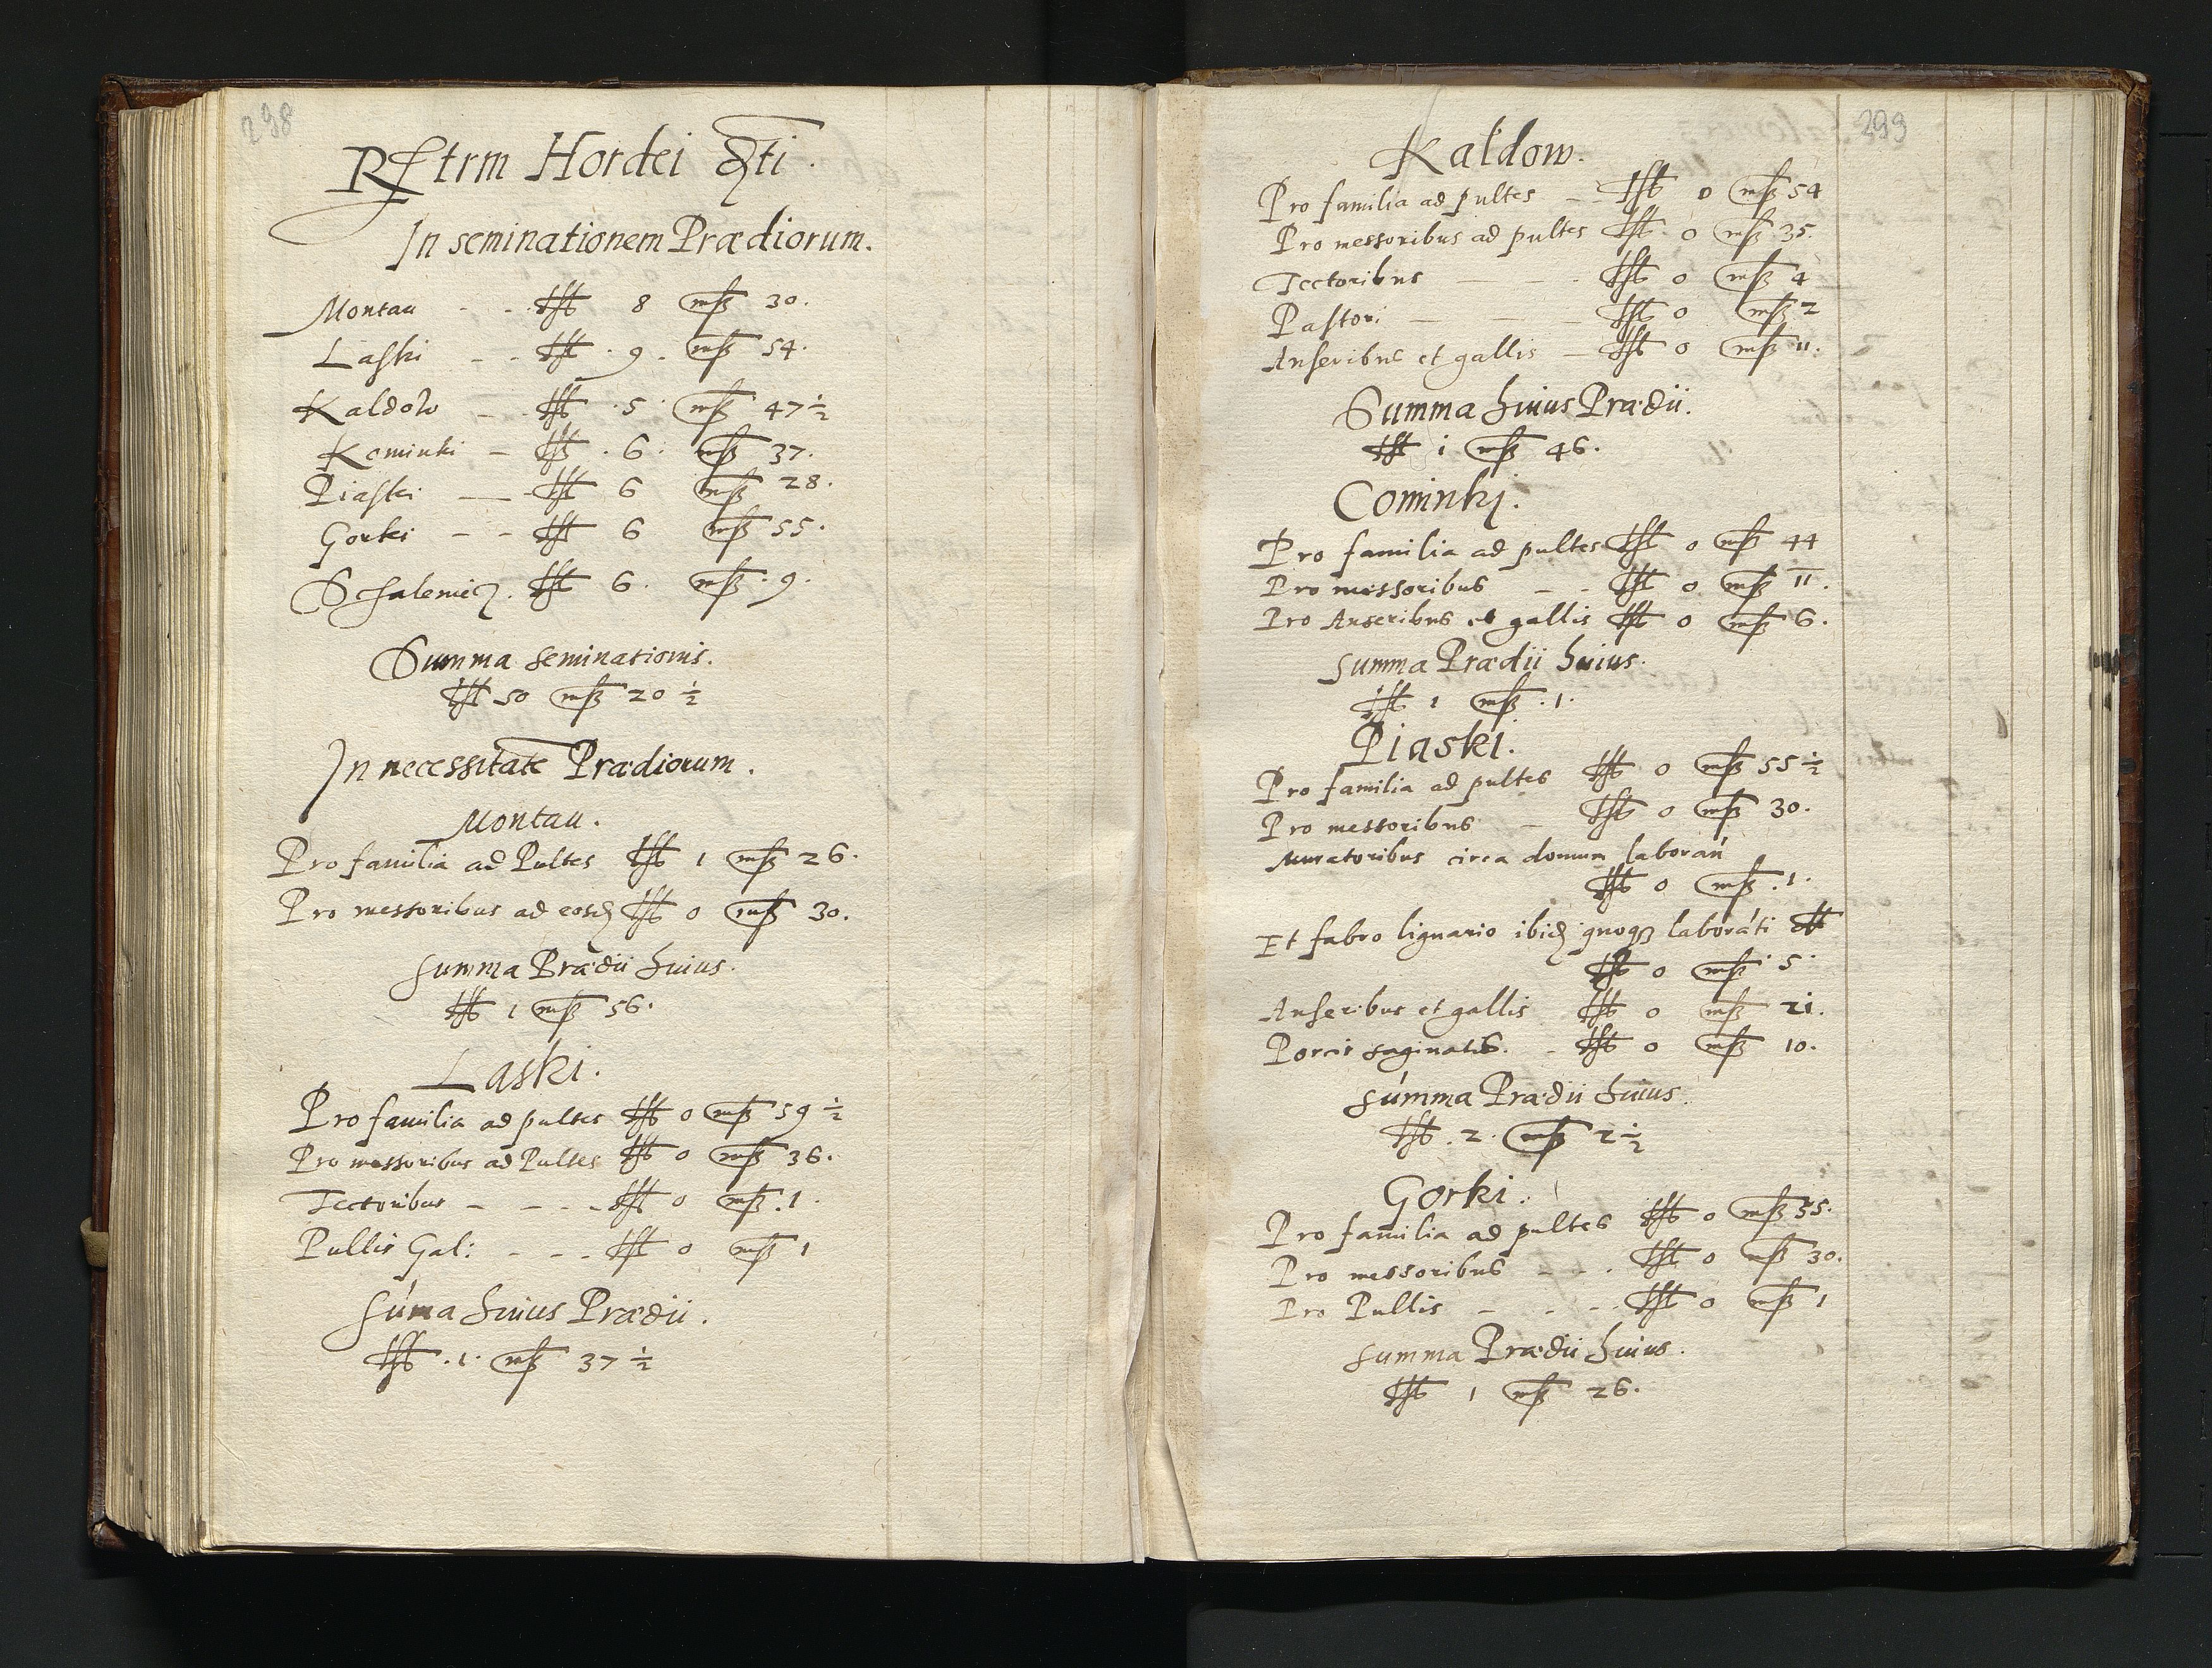 298
Rstrm Hordei Exti.
In seminationem Prædiorum.
Montau - - lst 8 mß 30.
Laski - - lst 9 mß 54.
Kaldow - - lst 5 mß 47 ½
Kominki - lst 6 mß 37.
Piaski - lst 6 mß 28.
Gorki - - lst 6 mß 55.
lst 6. mß 9.
Summa seminationis.
lst 50 mß 20 ½
In necessitate Prædiorum.
Montau.
Pro familia ad Pultes lst 1 mß 26.
Pro messoribus ad eosd lst 0 mß 30.
Summa Prædii huius.
lst 1 mß 56.
Laski.
Pro familia ad pultes lst 0 mß 59 ½
Pro messoribus ad Pultes lst 0 mß 36.
Tectoribus - - - lst 0 mß 1.
Pullis Gal: - - - lst 0 mß 1
Suma huius Prædii.
lst 1. mß 37 ½
299
Kaldow.
Pro familia ad pultes - - lst 0 mß 54
Pro messoribus ad pultes lst 0 mß 35.
Tectoribus - - - lst 0 mß 4
Pastori - - - lst 0 mß 2
Anseribus et gallis - lst 0 mß 11.
Summa huius Prædii.
lst 1 mß 46.
Cominkj.
Pro familia ad pultes lst 0 mß 44
Pro messoribus - - lst 0 mß 11.
Pro Anseribus et gallis lst 0 mß 6.
Summa Prædii huius.
lst 1 mß 1.
Piaski.
Pro familia ad pultes lst 0 mß 55 ½
Pro messoribus - lst 0 mß 30.
Muratoribus circa domum laboran
lst 0 mß 1.
Et fabro lignario ibid quoq laborati lst
lst 0 mß 5.
Anseribus et gallis lst 0 mß 21.
Porcis saginatis. - lst 0 mß 10.
Summa Prædii huius.
lst 2. mß 2 ½
Gorki.
Pro familia ad pultes lst 0 mß 55.
Pro messoribus - - . lst 0 mß 30.
Pro Pullis - - - lst 0 mß 1
Summa Prædii huius.
lst 1 mß 26.